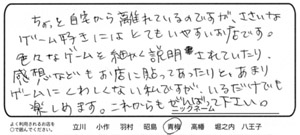 ちょっと自宅から離れているのですが、ささいな
ゲーム好きにはとてもいやすいお店です。
色々なゲームを細やく説明されていたり、
感想などもお店に貼ってあったりと、あまり
ゲームにくわしくない私ですが、いるだけでも
楽しめます。これからもぜんばって下さい。
ニックネーム
よく利用されるお店を
○で囲んでください。
立川 小作 羽村 昭島 青梅 高幡 堀之内 八王子